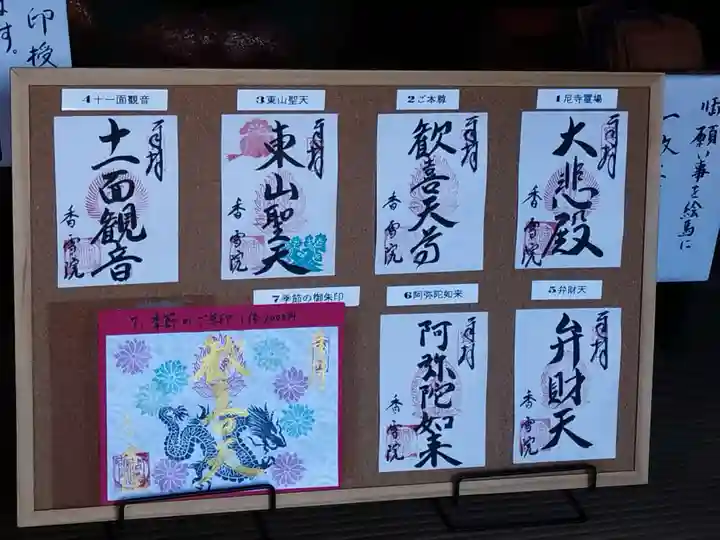 1尼寺霊場
大悲殿
香雪院
2ご本尊
歓喜天尊
香雪院
3東山聖天
東山聖天
香雪院
4十一面観音
十一面観音
香雪院
5弁財天
弁財天
香雪院
6阿弥陀如来
阿弥陀如来
香雪院
7季節の御朱印
歓喜天
印授
ます。
願い事を絵馬に